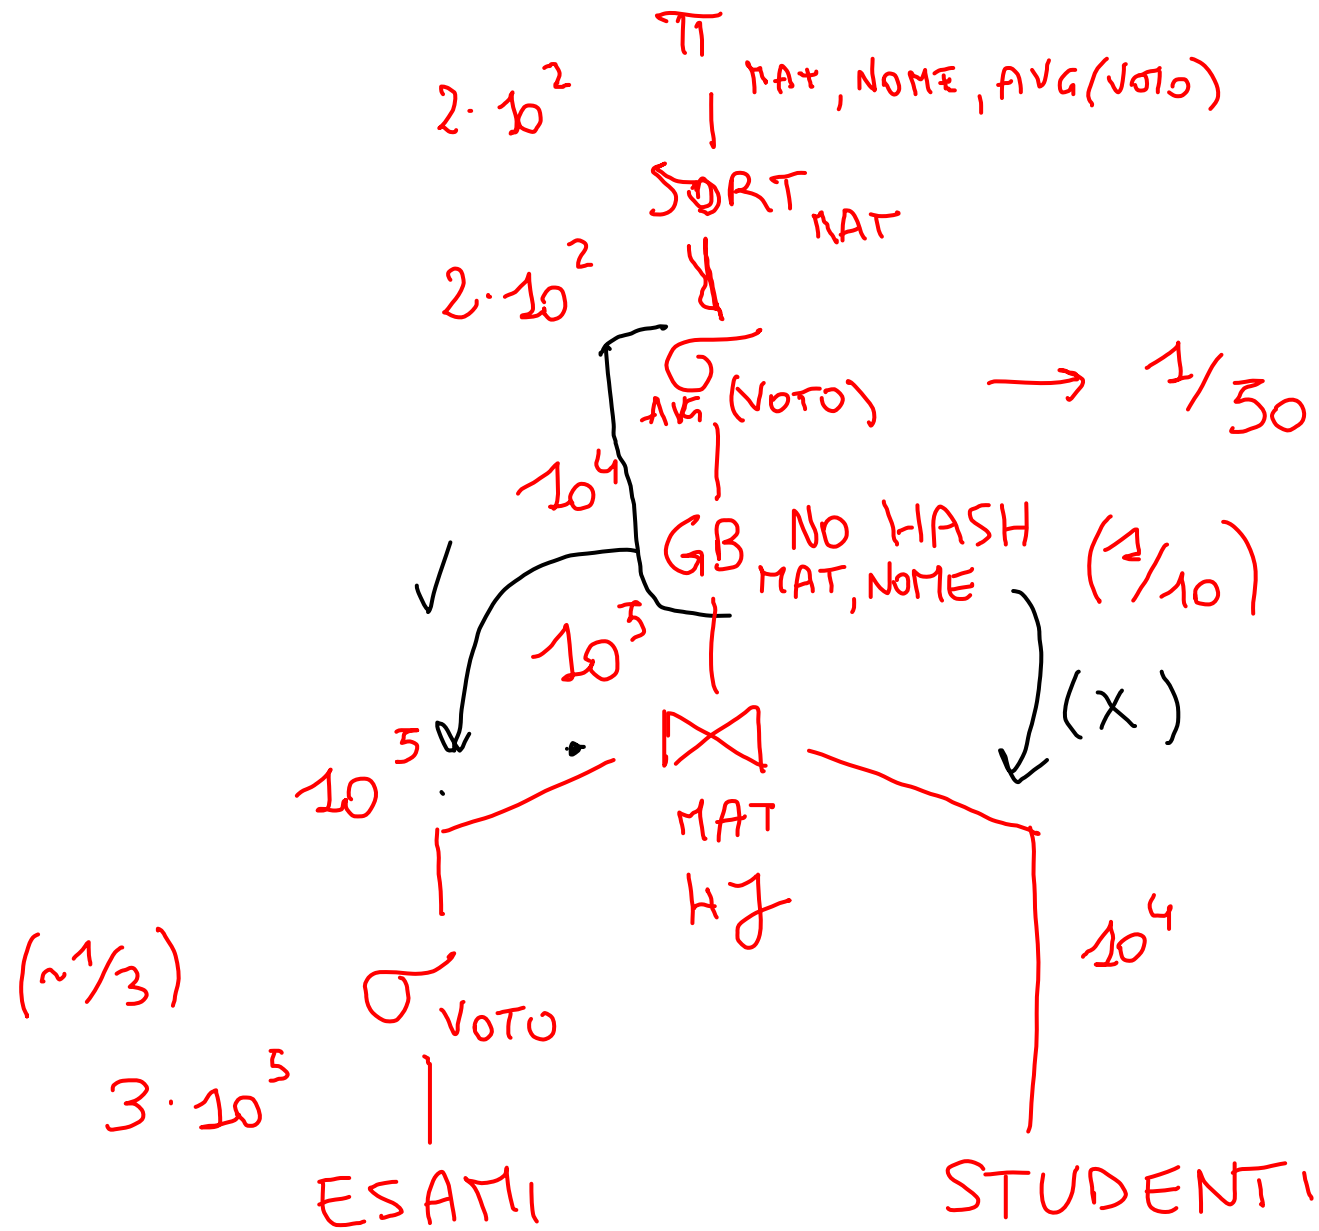 π MAT, NOME, AVG(VOTO)
2·10²
SORT MAT
2·10²
σ AVG(VOTO) → 1/50
10⁴
GB NO HASH MAT, NOME (1/10)
✓
10⁵
(X)
10⁵
⋈ MAT
HJ
10⁴
(~1/3)
σ VOTO
3·10⁵
ESAMI
STUDENTI